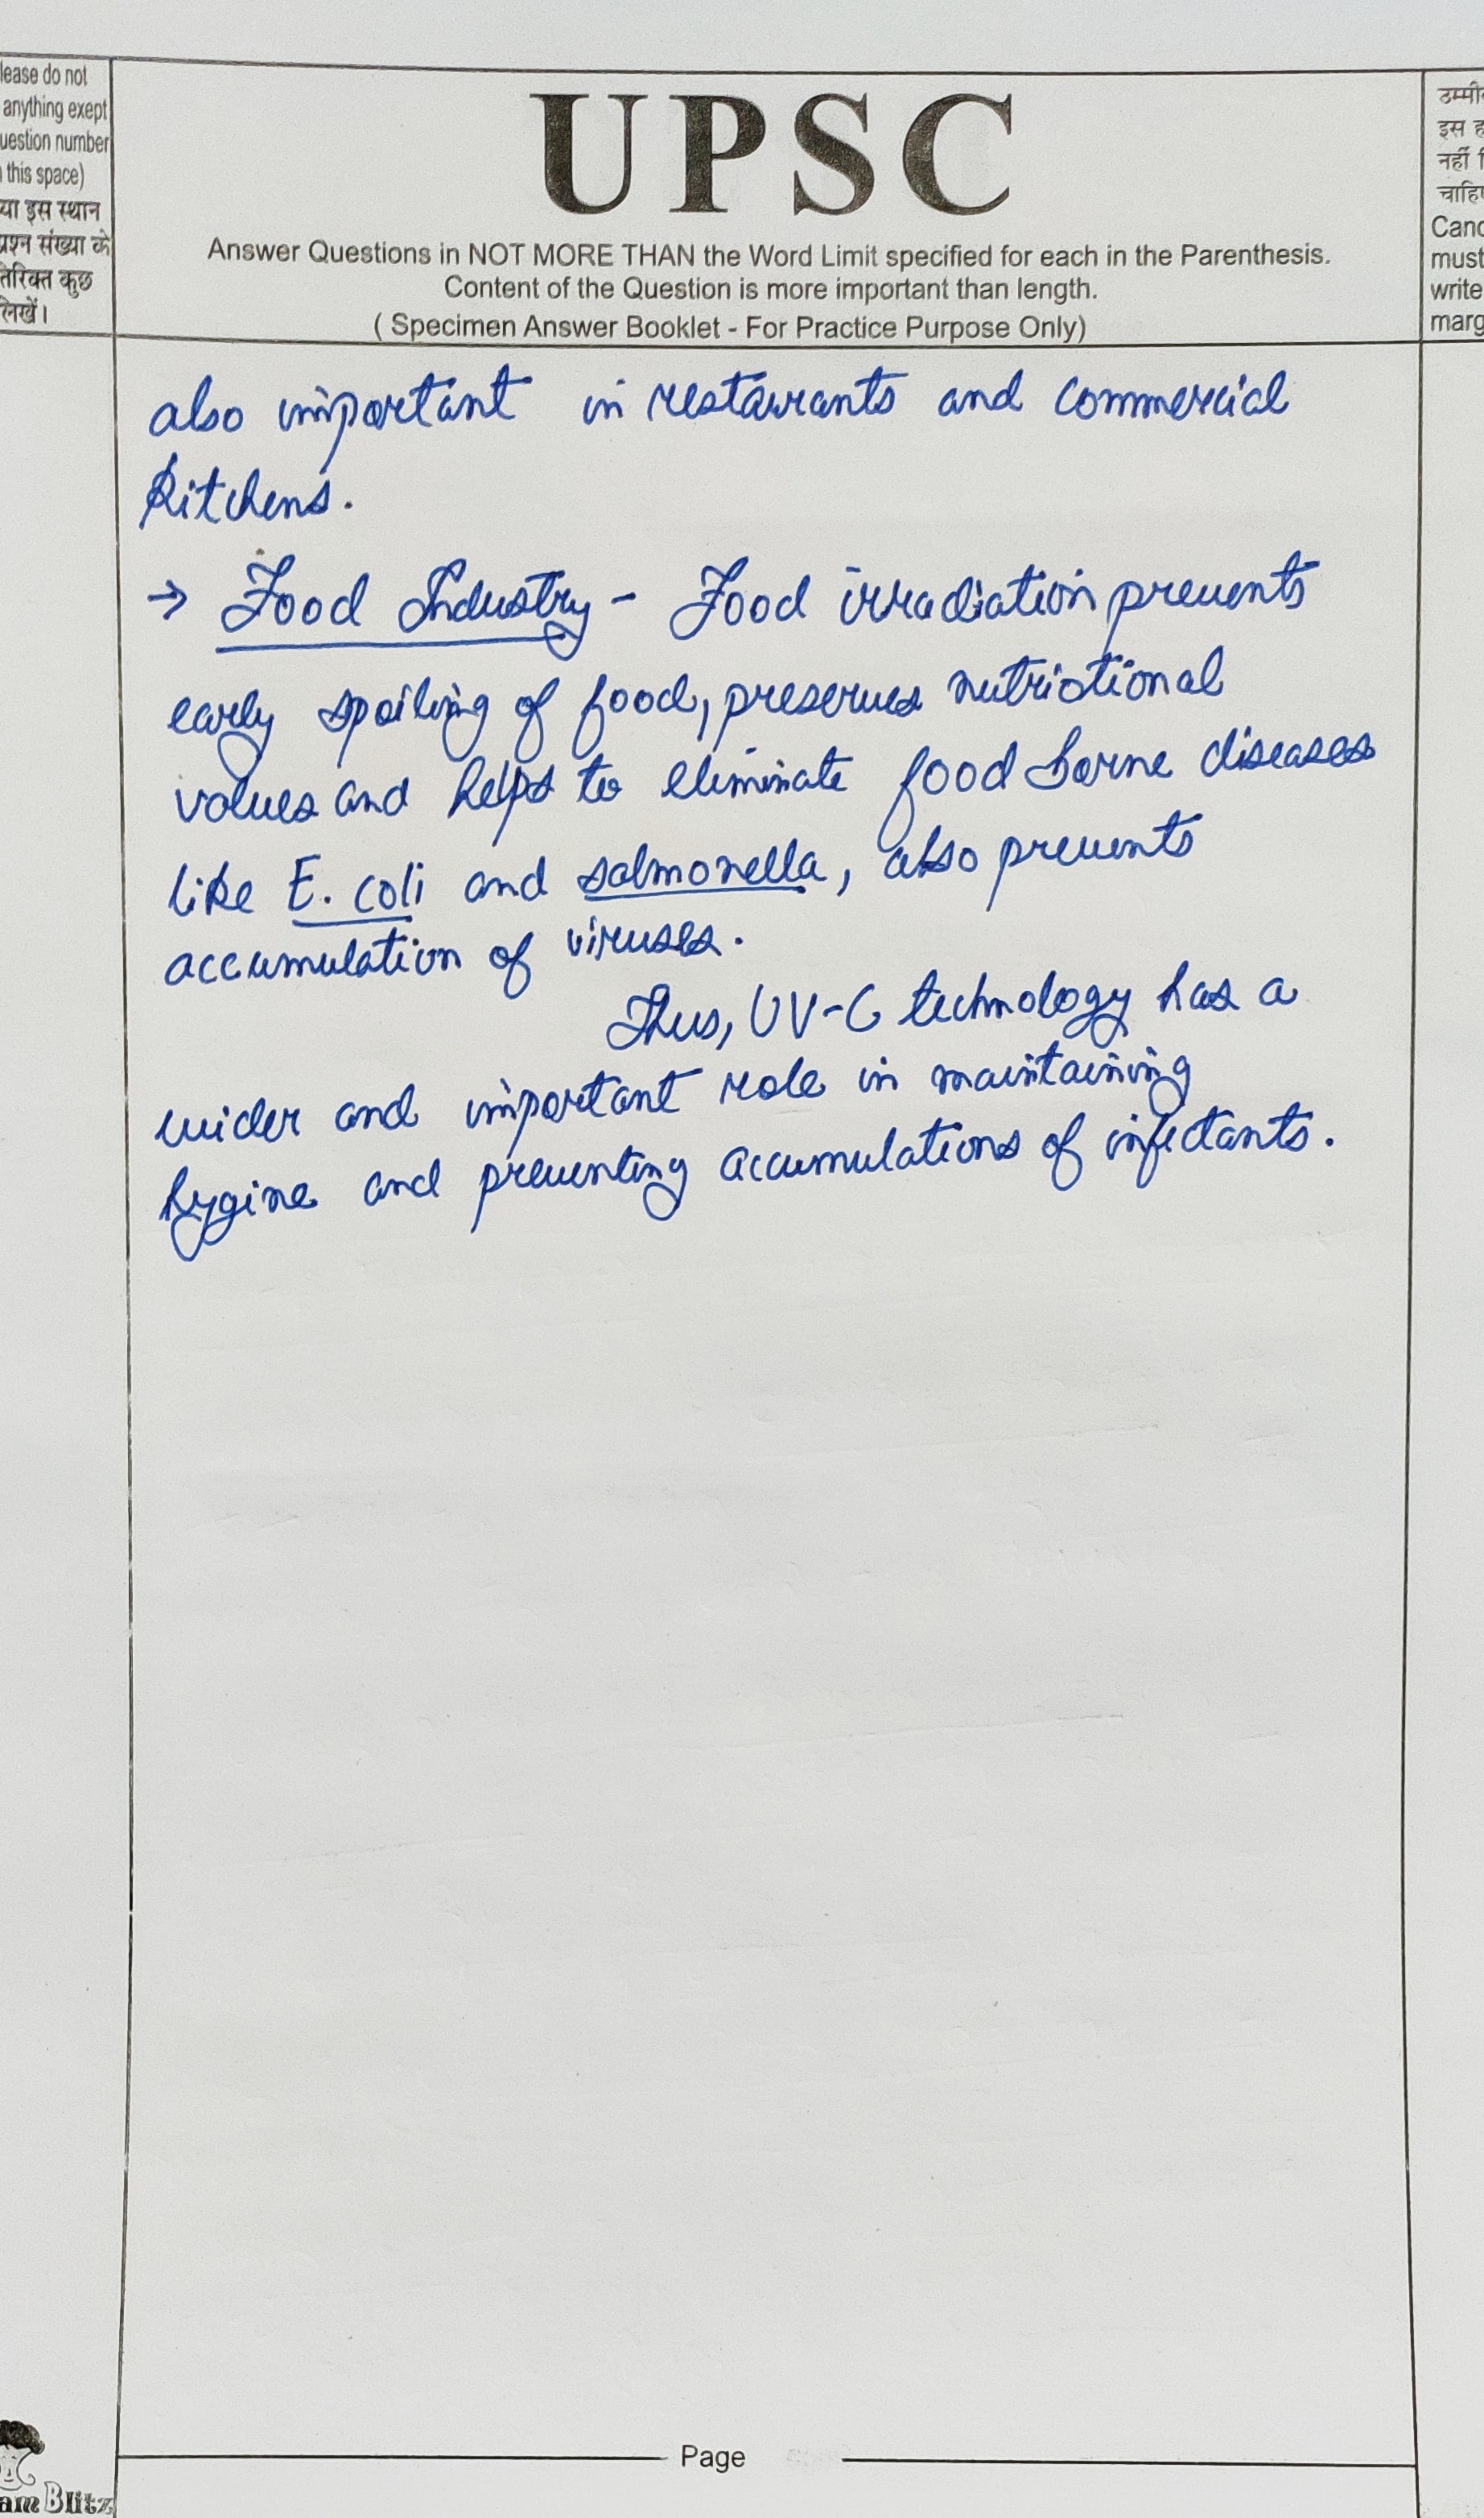 lease do not
anything exept
uestion number
this space)
या इस स्थान
प्रश्न संख्या के
तिरिक्त कुछ
लिखें।
UPSC
Answer Questions in NOT MORE THAN the Word Limit specified for each in the Parenthesis.
Content of the Question is more important than length.
( Specimen Answer Booklet - For Practice Purpose Only)
उम्मी
इस ह
नहीं
चाहि
Canc
must
write
marg
also important in restaurants and commercial
kitchens.
→ Food Industry - Food irradiation prevents
early spoiling of food, preserves nutriotional
values and helps to eliminate food borne diseases
like E. coli and salmonella, also prevents
accumulation of viruses.
Thus, UV-C technology has a
wider and important role in maintaining
hygine and preventing accumulations of infectants.
Page
am Blitz